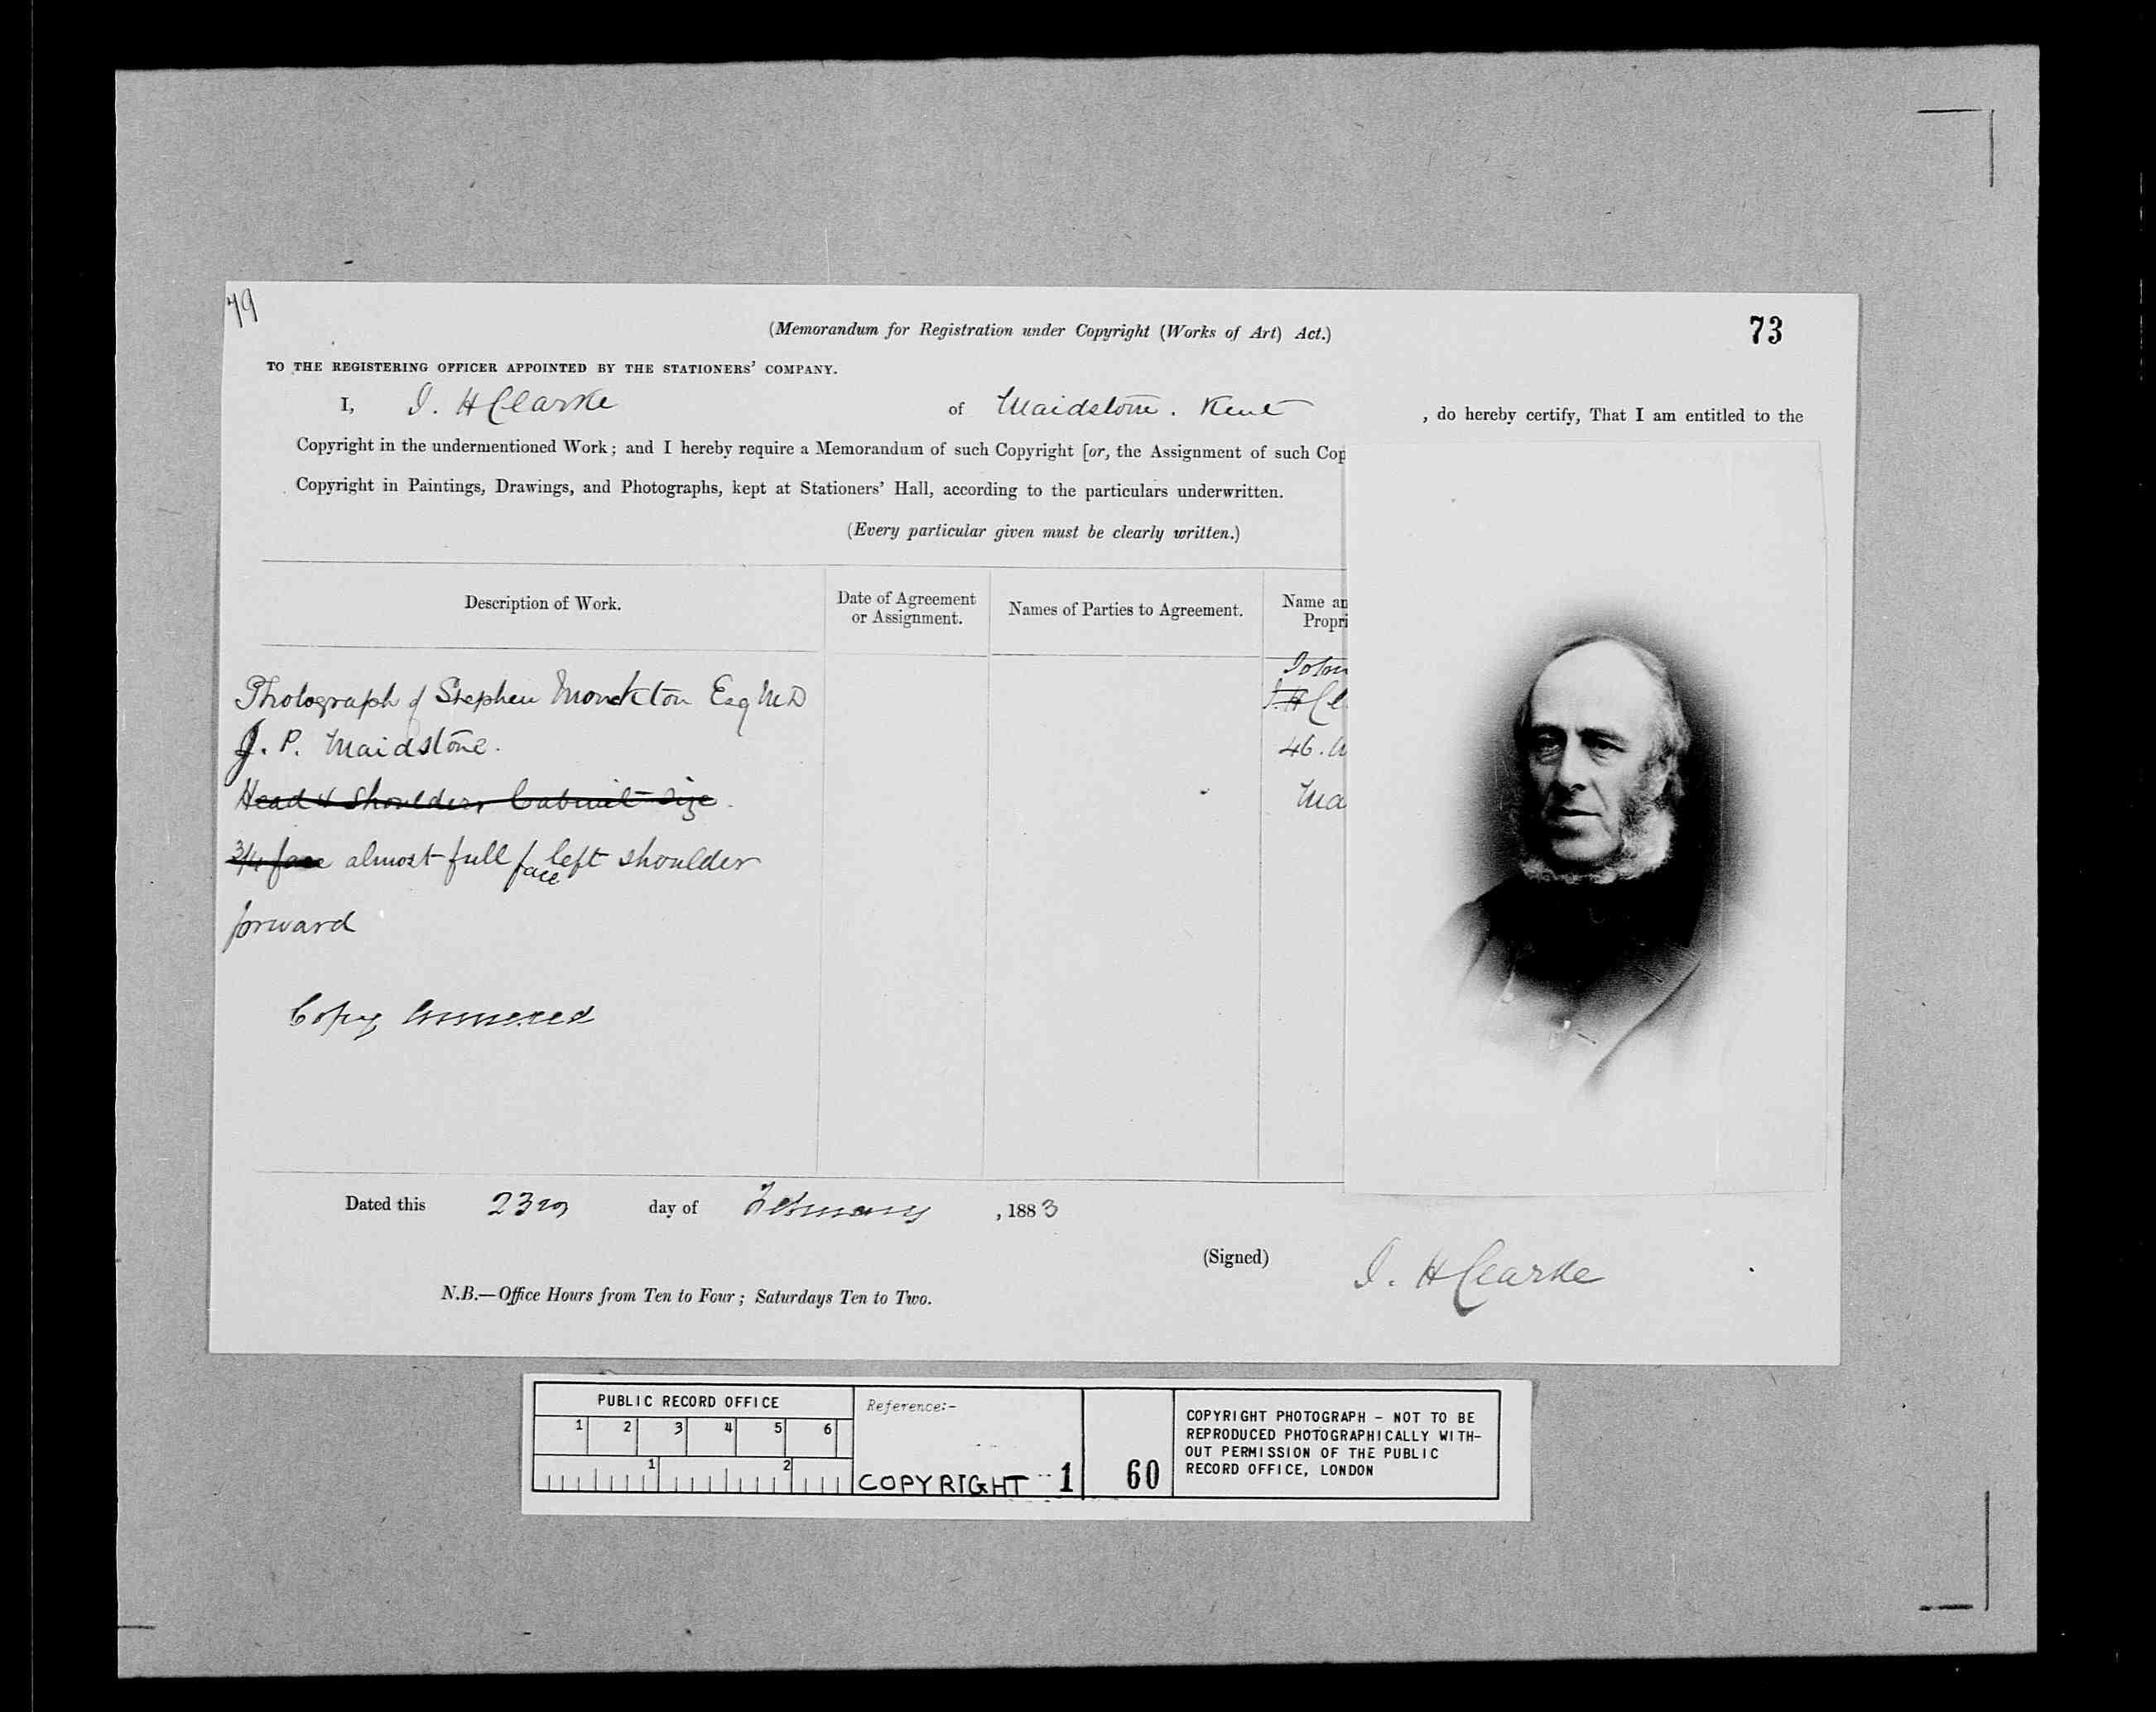 79
(Memorandum for Registration under Copyright (Works of Art) Act.)
73
TO THE REGISTERING OFFICER APPOINTED BY THE STATIONERS' COMPANY.
I, J. H Clarke of Maidstone. Kent , do hereby certify, That I am entitled to the
Copyright in the undermentioned Work; and I hereby require a Memorandum of such Copyright [or, the Assignment of such Cop
Copyright in Paintings, Drawings, and Photographs, kept at Stationers' Hall, according to the particulars underwritten.
(Every particular given must be clearly written.)
Description of Work.
Date of Agreement
or Assignment.
Names of Parties to Agreement.
Name an
Propri
Photograph of Stephen Monckton Esq M.D
J. P. Maidstone.
Head & Shoulders Cabinet size.
3/4 face almost full face left shoulder
forward
Copy Annexed
John
J. H Cl
46.
Ma
Dated this 23rd day of February , 1883
(Signed) J. H Clarke
N.B.—Office Hours from Ten to Four; Saturdays Ten to Two.
PUBLIC RECORD OFFICE
1 2 3 4 5 6
1 2
Reference:-
COPYRIGHT 1
60
COPYRIGHT PHOTOGRAPH - NOT TO BE
REPRODUCED PHOTOGRAPHICALLY WITH-
OUT PERMISSION OF THE PUBLIC
RECORD OFFICE, LONDON